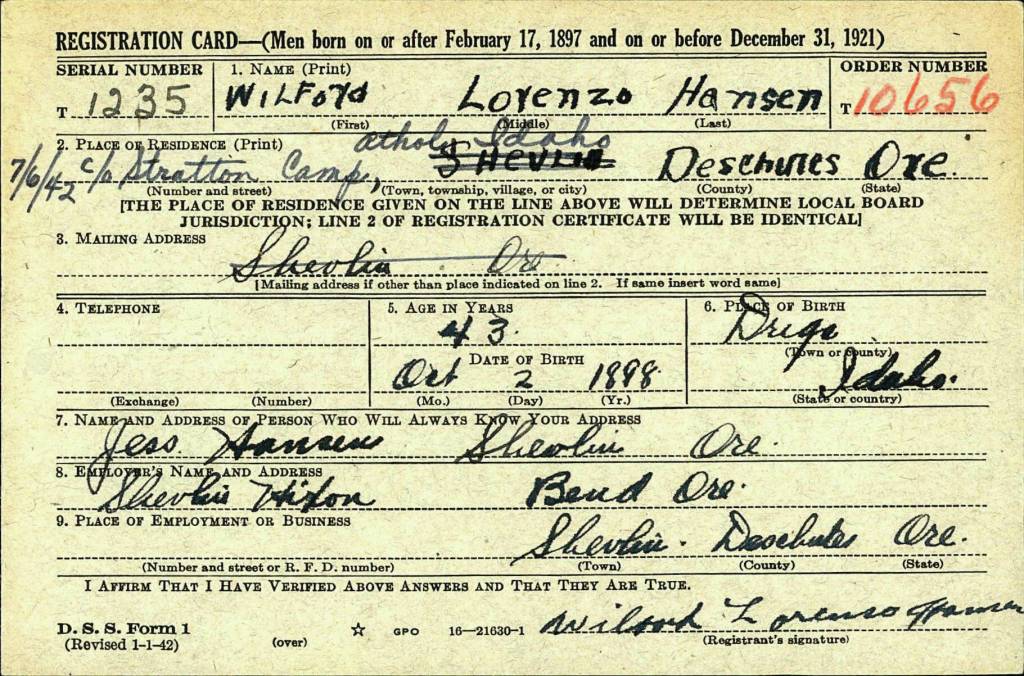 REGISTRATION CARD—(Men born on or after February 17, 1897 and on or before December 31, 1921)
SERIAL NUMBER 1. NAME (Print) ORDER NUMBER
T 1235 WILFord Lorenzo Hansen T 10656
(First) (Middle) (Last)
2. PLACE OF RESIDENCE (Print) athol, Idaho
7/6/42 c/o Stratton Camp, SHEVLIN Deschutes Ore.
(Number and street) (Town, township, village, or city) (County) (State)
[THE PLACE OF RESIDENCE GIVEN ON THE LINE ABOVE WILL DETERMINE LOCAL BOARD
JURISDICTION; LINE 2 OF REGISTRATION CERTIFICATE WILL BE IDENTICAL]
3. MAILING ADDRESS
Shevlin Ore
[Mailing address if other than place indicated on line 2. If same insert word same]
4. TELEPHONE 5. AGE IN YEARS 6. PLACE OF BIRTH
43 Drigs
DATE OF BIRTH (Town or county)
Oct 2 1898 Idaho.
(Exchange) (Number) (Mo.) (Day) (Yr.) (State or country)
7. NAME AND ADDRESS OF PERSON WHO WILL ALWAYS KNOW YOUR ADDRESS
Jess Hansen Shevlin Ore.
8. EMPLOYER'S NAME AND ADDRESS
Shevlin Hixon Bend Ore.
9. PLACE OF EMPLOYMENT OR BUSINESS
Shevlin. Deschutes Ore.
(Number and street or R. F. D. number) (Town) (County) (State)
I AFFIRM THAT I HAVE VERIFIED ABOVE ANSWERS AND THAT THEY ARE TRUE.
D. S. S. Form 1 GPO 16—21630-1 Wilford Lorenso Hansen
(Revised 1-1-42) (over) (Registrant's signature)